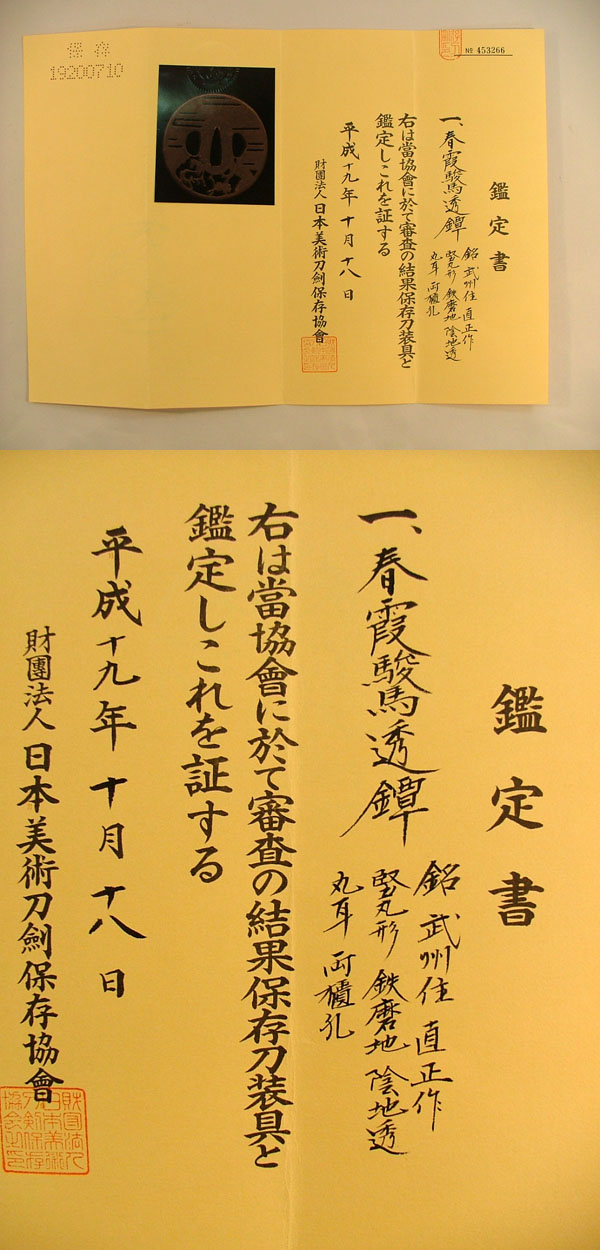 保存
19200710
№ 453266
鑑定書
一、春霞駿馬透鐔
銘 武州住 直正作
竪丸形 鉄磨地 陰地透
丸耳 両櫃孔
右は當協會に於て審査の結果保存刀装具と
鑑定しこれを証する
平成十九年 十月 十八 日
財團法人 日本美術刀劍保存協會
鑑定書
一、春霞駿馬透鐔
銘 武州住 直正作
竪丸形 鉄磨地 陰地透
丸耳 両櫃孔
右は當協會に於て審査の結果保存刀装具と
鑑定しこれを証する
平成十九年 十月 十八 日
財團法人 日本美術刀劍保存協會